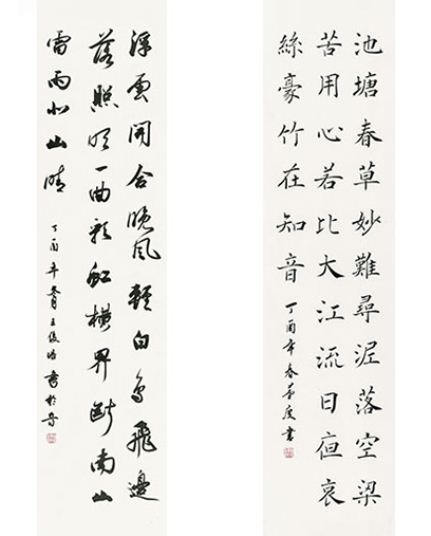 池塘春草妙難尋泥落空梁
苦用心若比大江流日亱哀
絲豪竹在知音
丁酉年春 書
浮雲開合晚風輕白鳥飛邊
落照明一曲彩虹橫界斷南山
雷雨北山晴
丁酉年春月王 書於